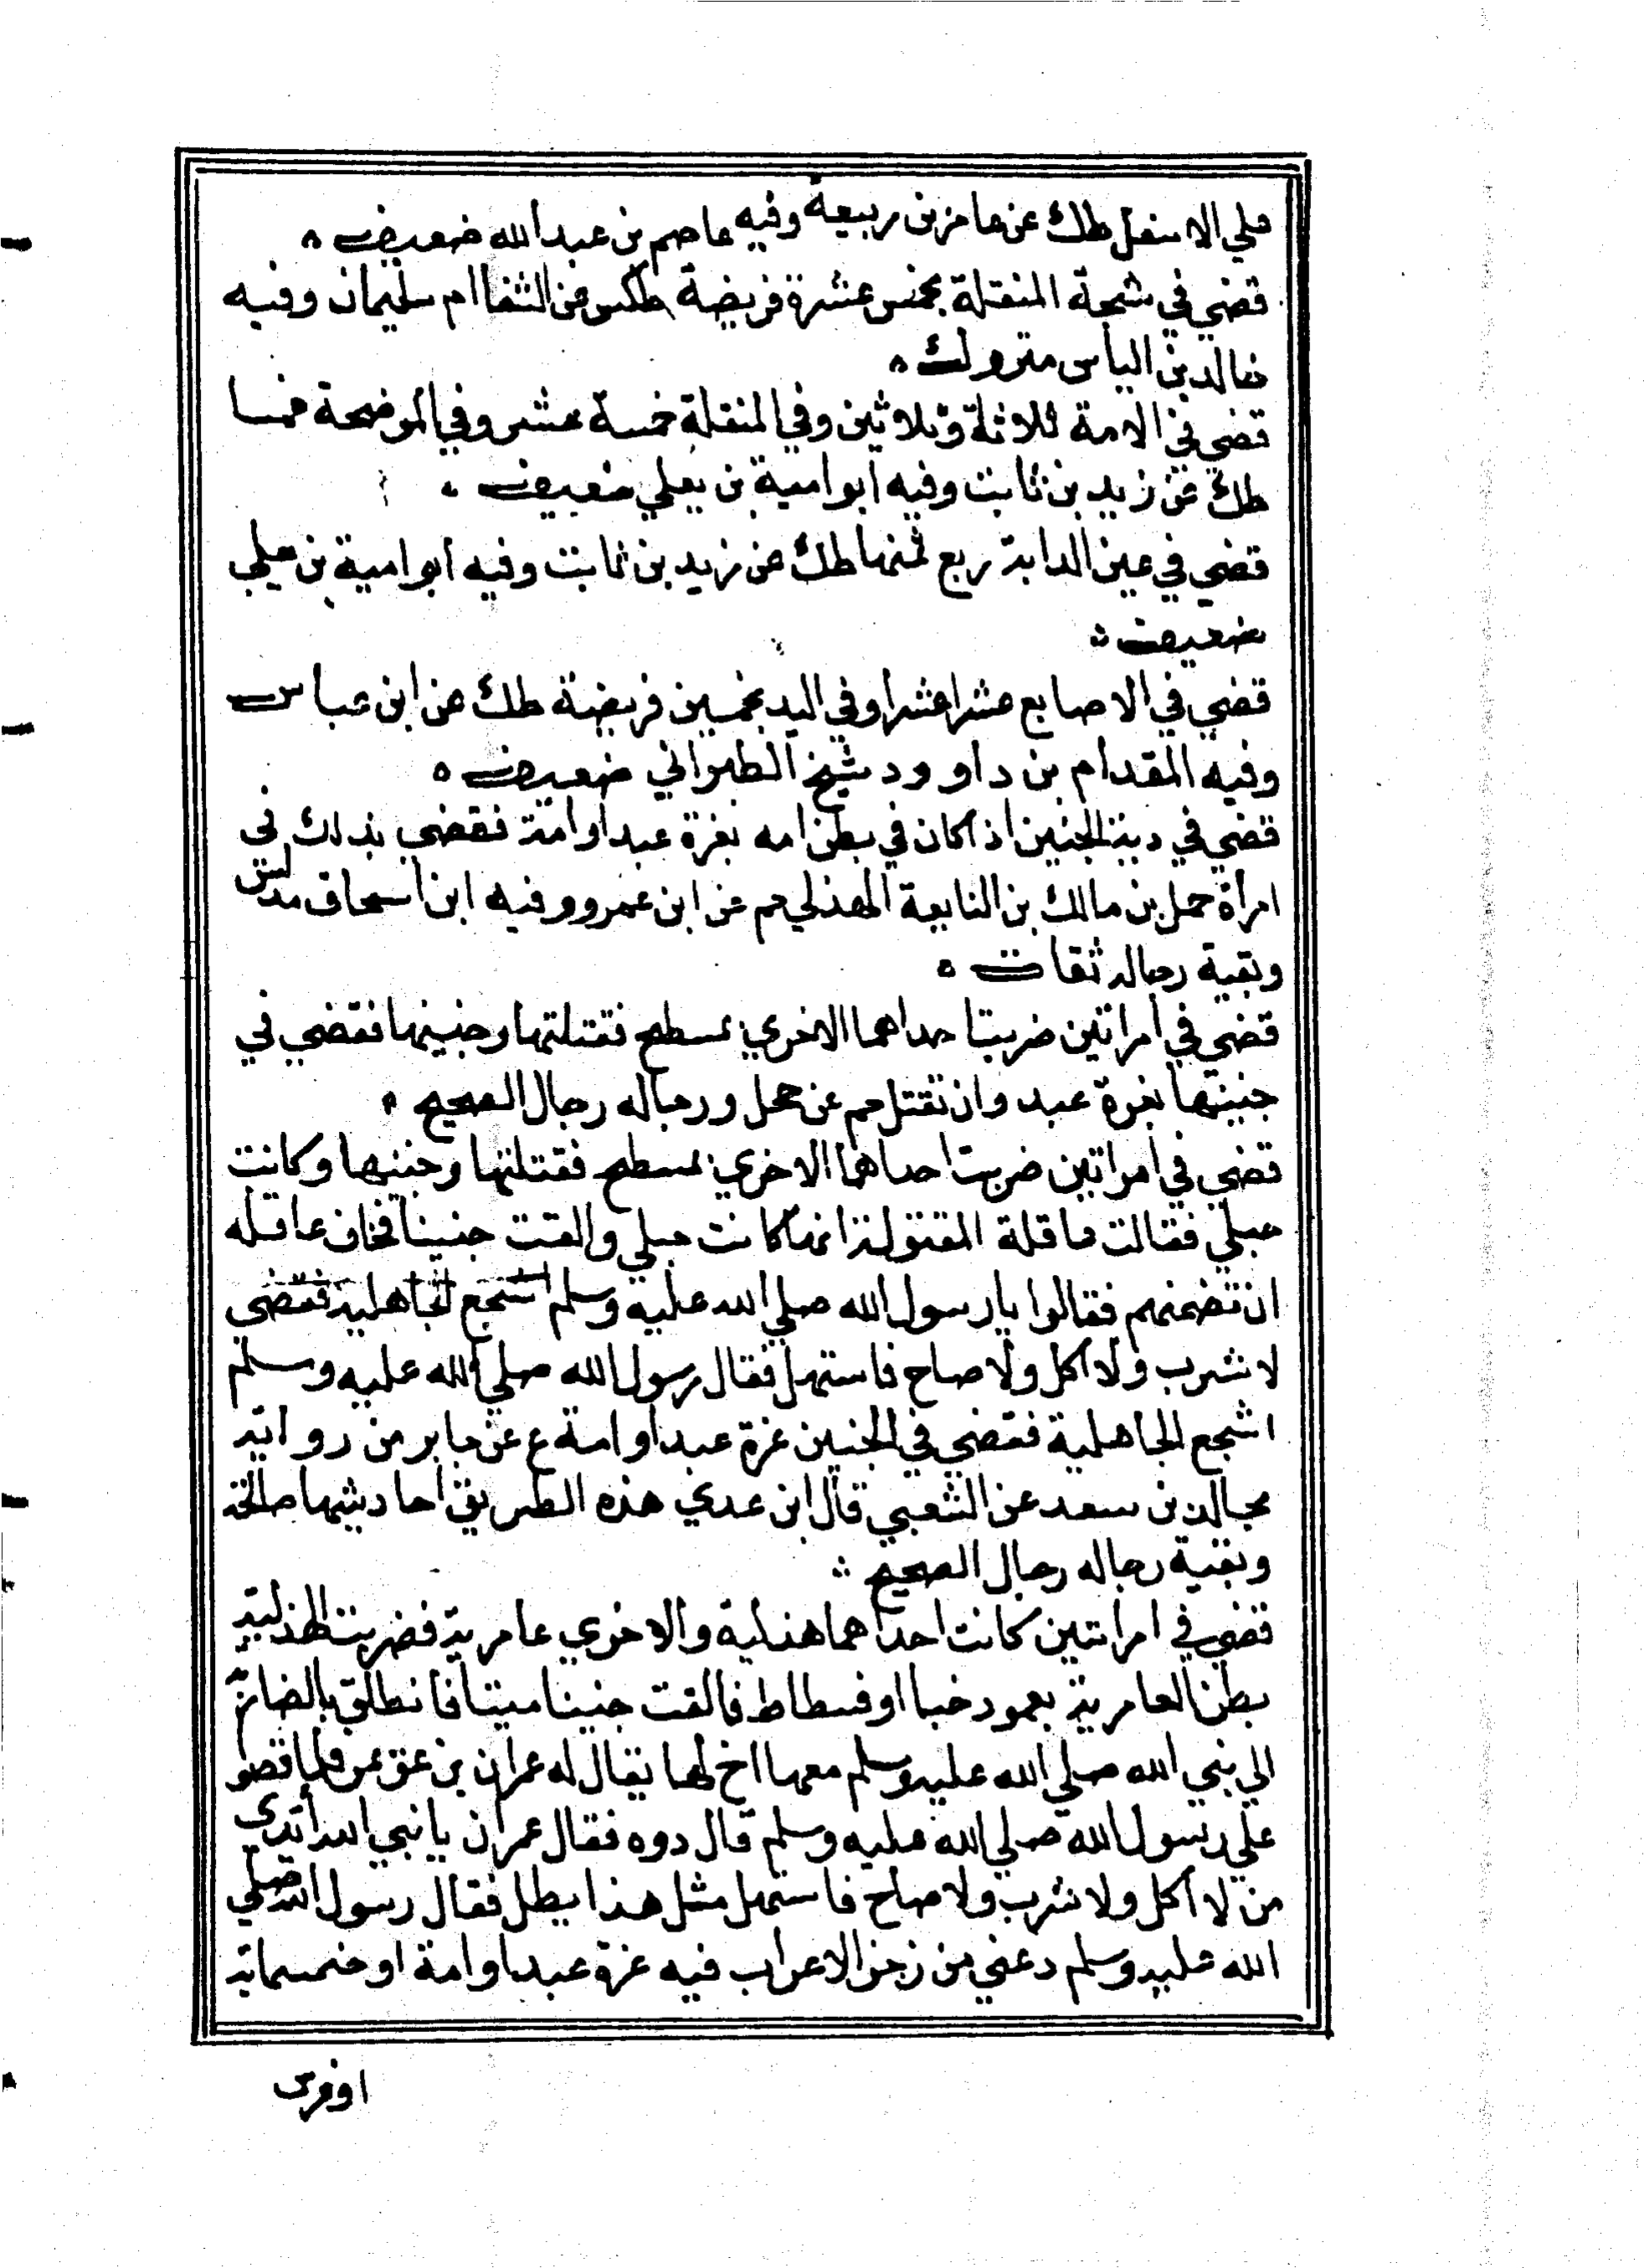 علي الاسفل طك عن عامر بن ربيعة وفيه عاصم بن عبد الله ضعيف
قضي في شجة المنقلة بخمس عشرة فريضة طكس عن الشفا ام سليمان وفيه
خالد بن الياس متروك
قضي في الامة ثلاثة وثلاثين وفي المنقلة خمسة عشر وفي الموضحة خمسا
طك عن زيد بن ثابت وفيه ابو امية بن يعلي ضعيف
قضي في عين الدابة ربع ثمنها طك عن زيد بن ثابت وفيه ابو امية بن يعلي
ضعيف
قضي في الاصابع عشرا عشرا وفي اليد بخمسين فريضة طك عن ابن عباس
وفيه المقدام بن داوود شيخ الطبراني ضعيف
قضي في دية الجنين اذ اكان في بطن امه بغرة عبد او امة فقضي بذلك في
امرأة حمل بن مالك بن النابغة الهذلي حم عن ابن عمرو وفيه ابن اسحاق مدلس
وبقية رجاله ثقات
قضي في امراتين ضربتا حداهما الاخري بمسطح فقتلتها وجنينها فقضي في
جنينها بغرة عبد وان تقتل حم عن حمل ورجاله رجال الصحيح
قضي في امراتين ضربت احداهما الاخري بمسطح فقتلتها وجنينها وكانت
حبلي فقالت عاقلة المقتولة انها كانت حبلي والقت جنينا فخاف عاقله
ان تضمنهم فقالوا يارسول الله صلي الله عليه وسلم اسجع الجاهلية فقضي
لا شرب ولا اكل ولا صاح فاستهل فقال رسول الله صلي الله عليه وسلم
اسجع الجاهلية فقضي في الجنين غرة عبد او امة ع عن جابر من رواية
مجالد بن سعد عن الشعبي قال ابن عدي هذه الطريق احاديثها صالحة
وبقية رجاله رجال الصحيح
قضي في امراتين كانت احداهما هذلية والاخري عامرية فضربت الهذلية
بطن العامرية بعمود خبا او فسطاط فالقت جنينا ميتا فانطلق بالضاربة
الي نبي الله صلي الله عليه وسلم معها اخ لها يقال له عمران بن فلما قصو
علي رسول الله صلي الله عليه وسلم قال دوه فقال عمران يا نبي الله أندي
من لا اكل ولا شرب ولا صاح فاستهل مثل هذا يطل فقال رسول الله صلي
الله عليه وسلم دعني من رجز الاعراب فيه غرة عبد او امة او خمسمائة
او فرس